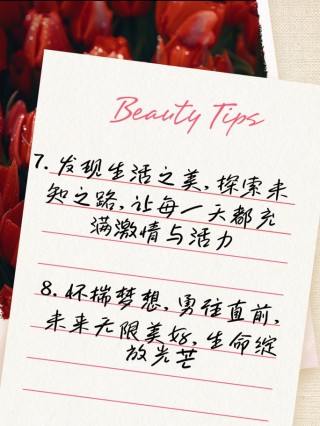 Beauty Tips
7. 发现生活之美，探索未
知之路，让每一天都充
满激情与活力
8. 怀揣梦想，勇往直前，
未来无限美好，生命绽
放光芒